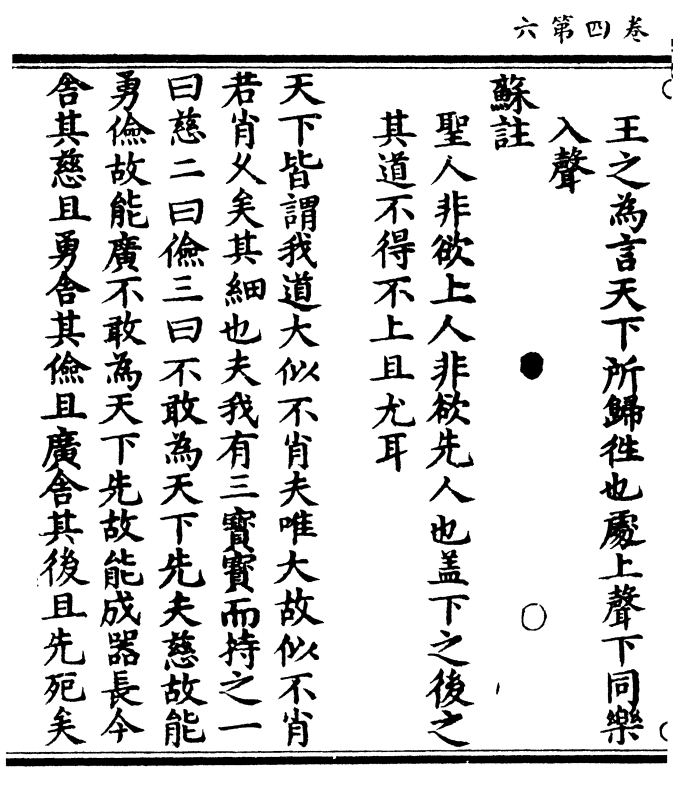 卷四第六
王之為言天下所歸徃也處上聲下同樂
入聲
蘇註
聖人非欲上人非欲先人也盖下之後之
其道不得不上且尤耳
天下皆謂我道大似不肖夫唯大故似不肖
若肖乆矣其細也夫我有三寳寳而持之一
曰慈二曰儉三曰不敢為天下先夫慈故能
勇儉故能廣不敢為天下先故能成器長今
舎其慈且勇舎其儉且廣舎其後且先死矣